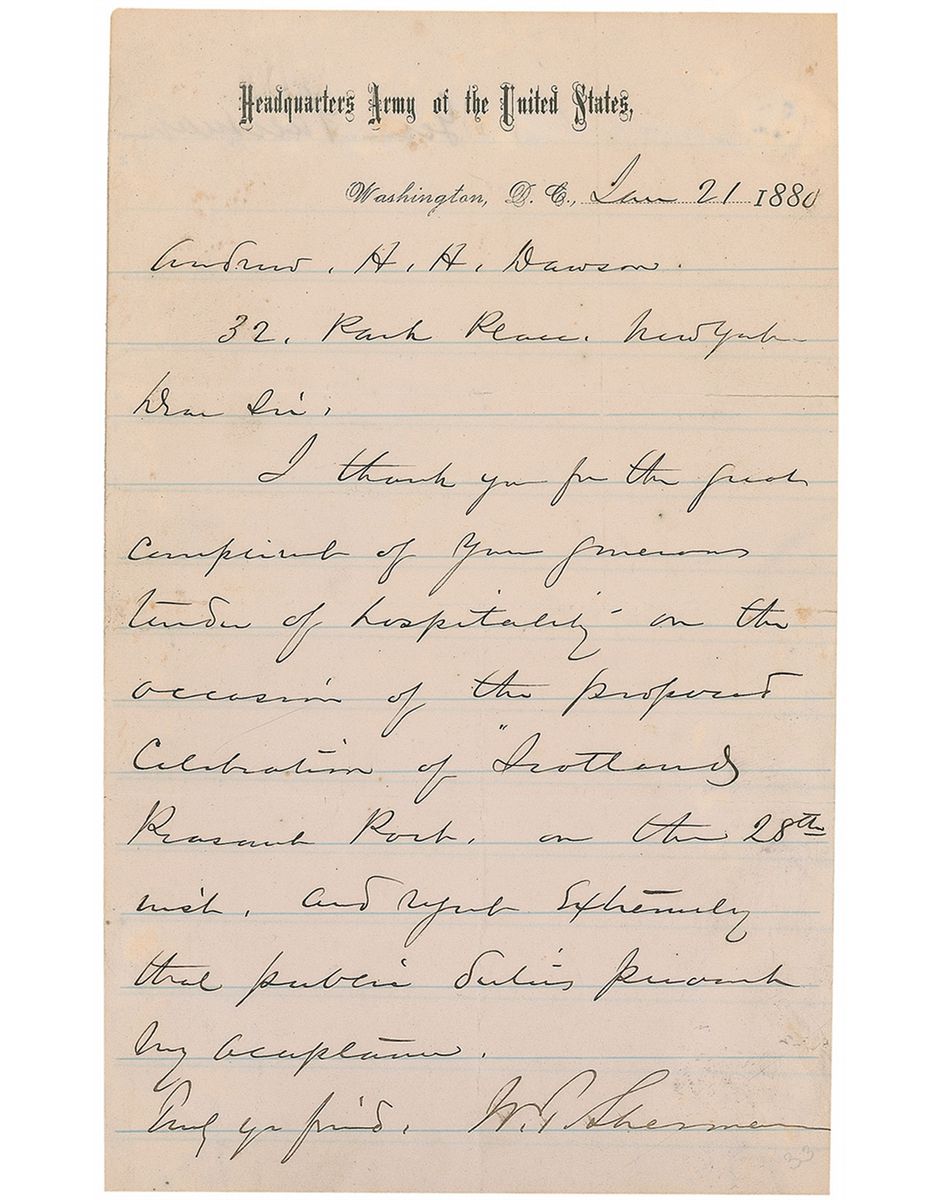 Headquarters Army of the United States,
Washington, D. C., Jan 21 1880
Andrew. H. H. Dawson.
32. Park Place. New York
Dear Sir.
I thank you for the great
compliment of your generous
tender of hospitality on the
occasion of the proposed
Celebration of "Scotlands
Peasant Poet. on the 28th
inst. and regret Extremely
that public duties prevent
my acceptance.
Truly yr friend. W. T. Sherman
33